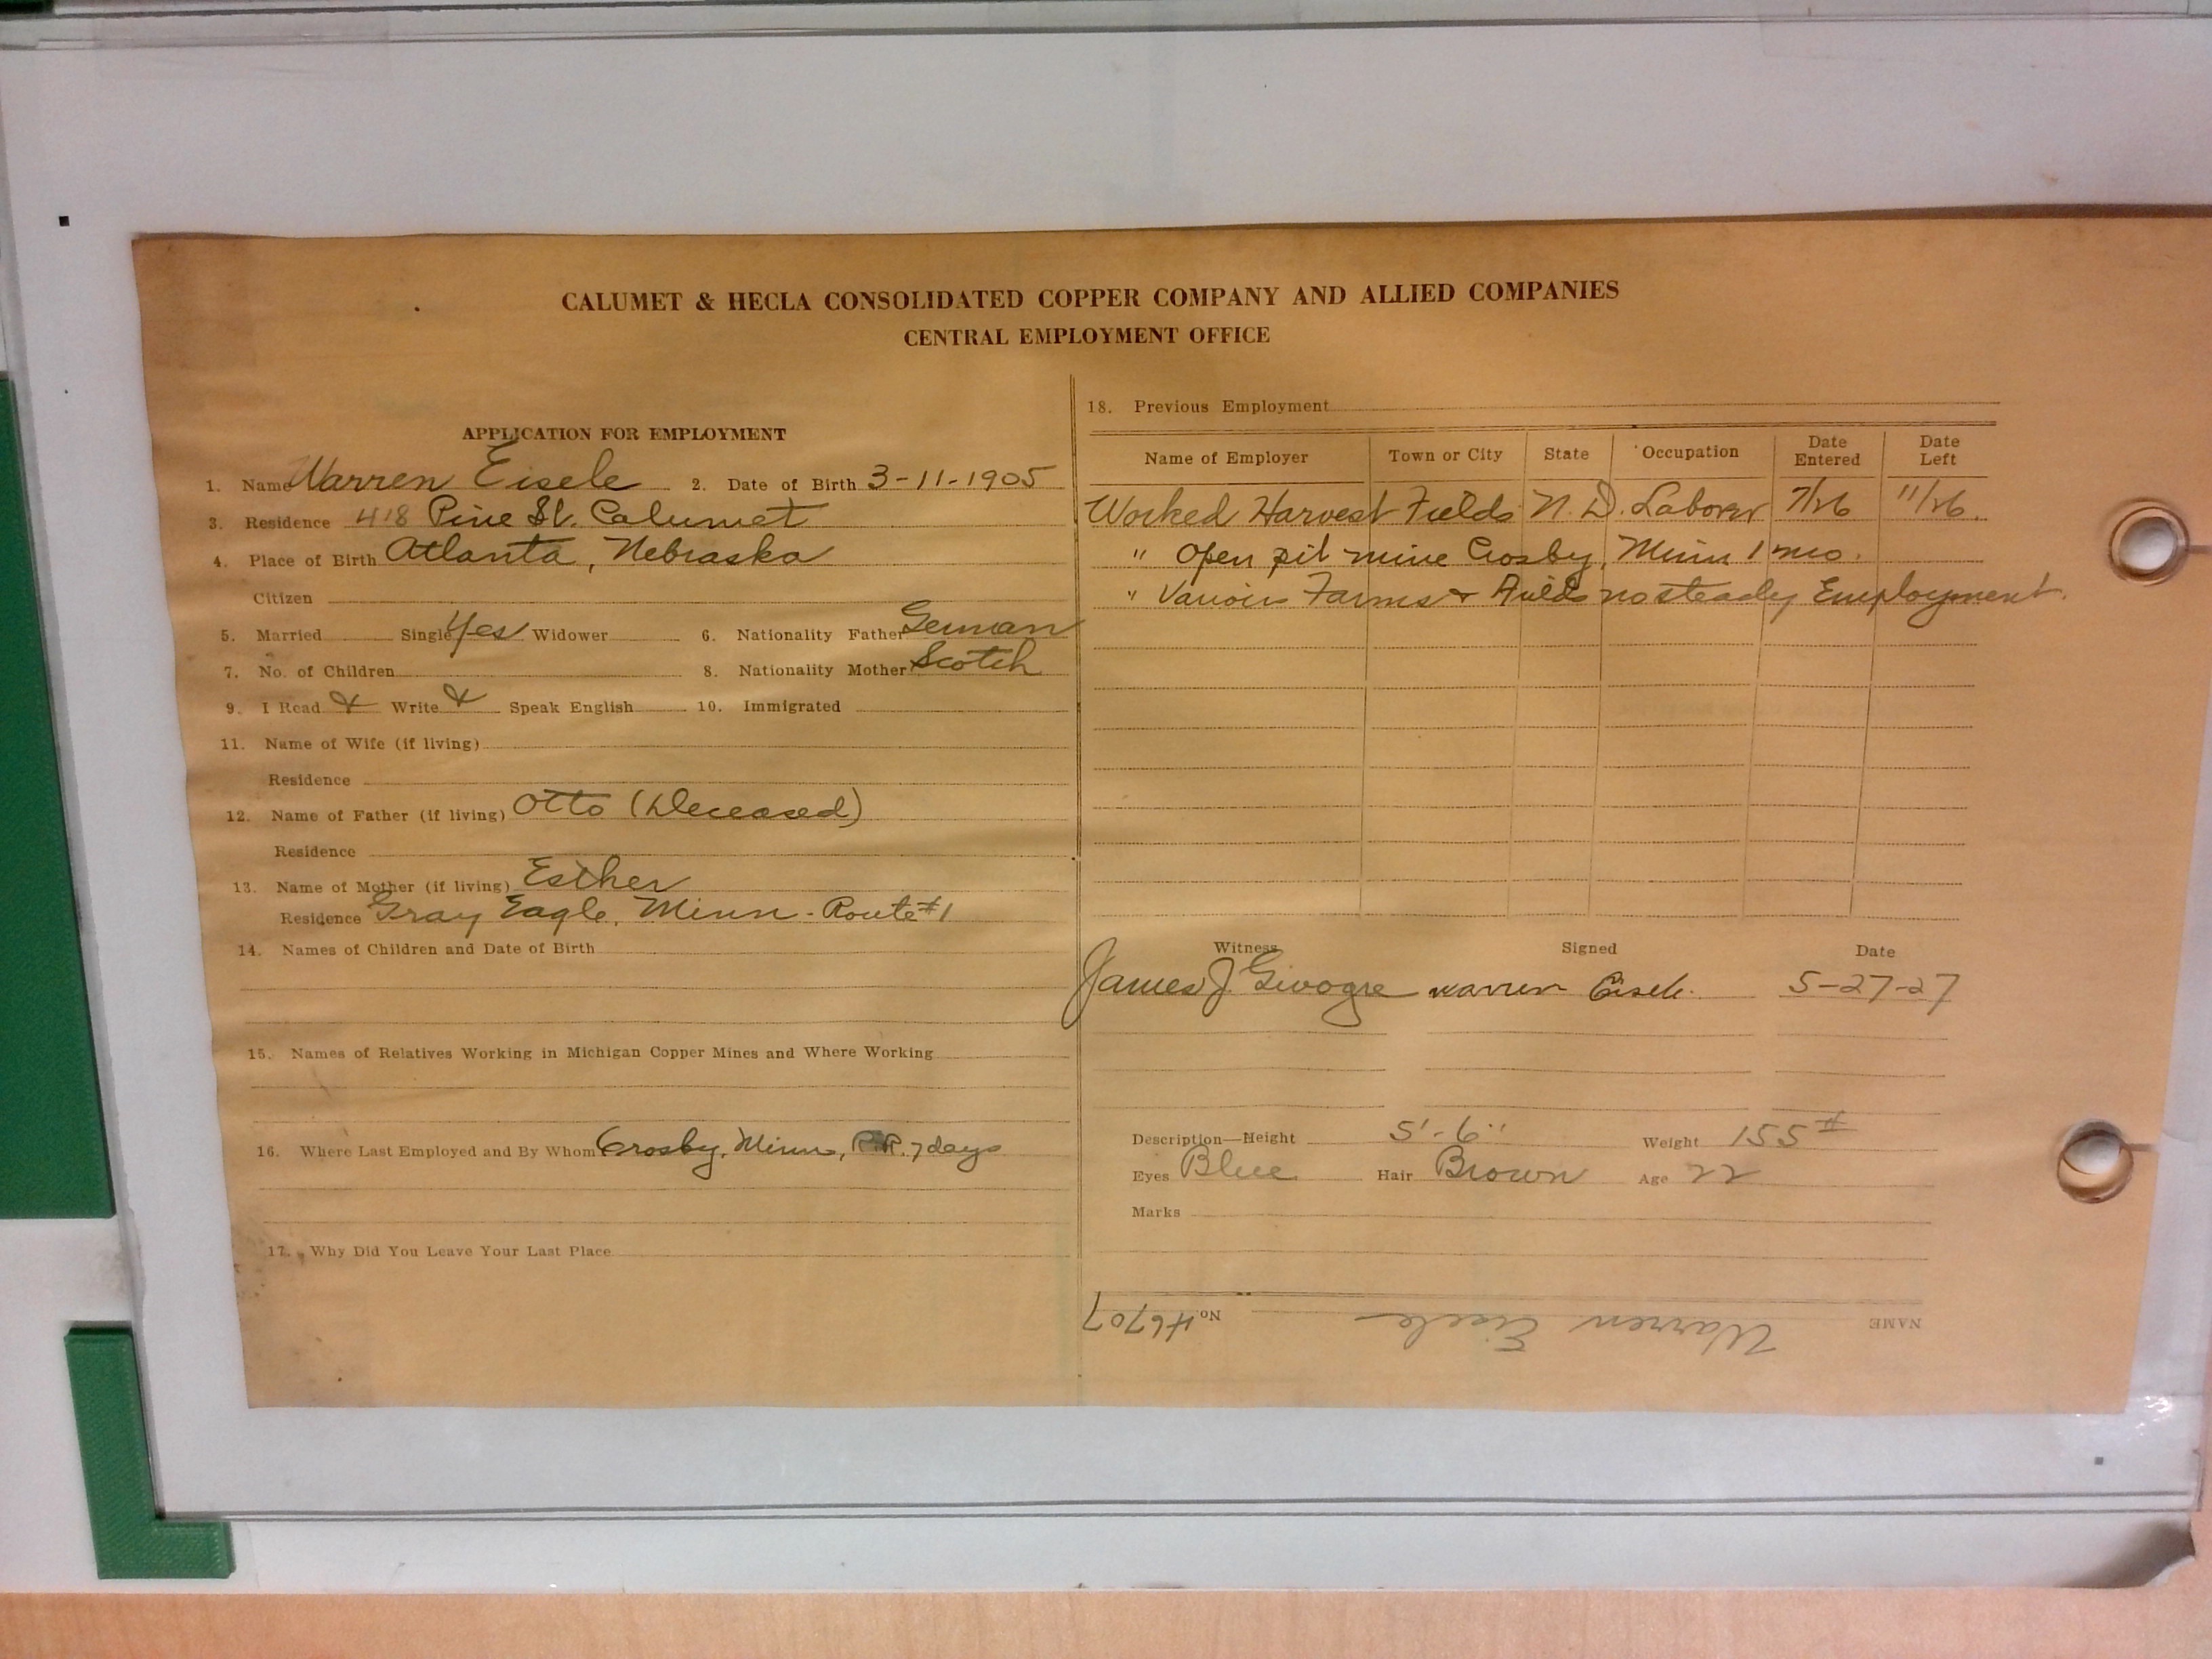 CALUMET & HECLA CONSOLIDATED COPPER COMPANY AND ALLIED COMPANIES
CENTRAL EMPLOYMENT OFFICE
APPLICATION FOR EMPLOYMENT
1. Name Warren Eisele 2. Date of Birth 3-11-1905
3. Residence 418 Pine St. Calumet
4. Place of Birth Atlanta, Nebraska
Citizen
5. Married Single Yes Widower 6. Nationality Father German
7. No. of Children 8. Nationality Mother Scotch
9. I Read & Write & Speak English 10. Immigrated
11. Name of Wife (if living)
Residence
12. Name of Father (if living) Otto (Deceased)
Residence
13. Name of Mother (if living) Esther
Residence Gray Eagle, Minn - Route #1
14. Names of Children and Date of Birth
15. Names of Relatives Working in Michigan Copper Mines and Where Working
16. Where Last Employed and By Whom Crosby, Minn, R.R. 7 days
17. Why Did You Leave Your Last Place
18. Previous Employment
Name of Employer Town or City State Occupation Date Entered Date Left
Worked Harvest Fields N.D. Laborer 7/26 11/26.
" Open pit mine Crosby, Minn 1 mo.
" Farms & Fields no steady Employment.
Witness Signed Date
James J. Warren Eisele. 5-27-27
Description—Height 5'-6" Weight 155#
Eyes Blue Hair Brown Age 22
Marks
NAME Warren Eisele No. 46707